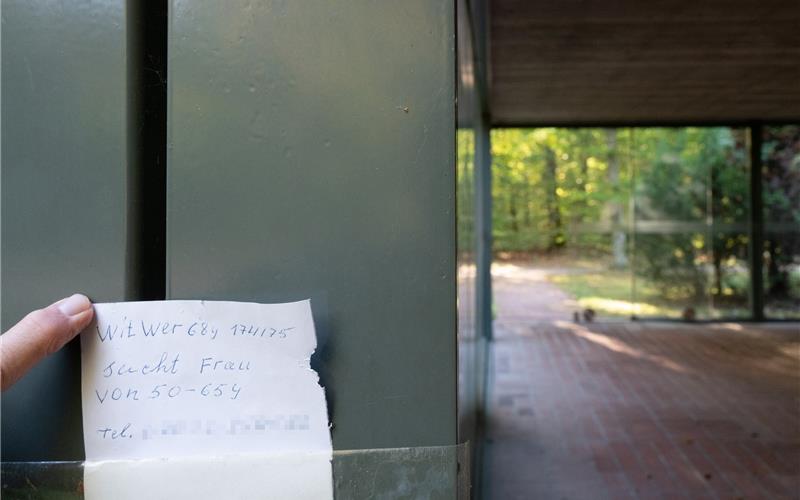 WitWer 68y 174175
sucht Frau
von 50-65y
Tel.